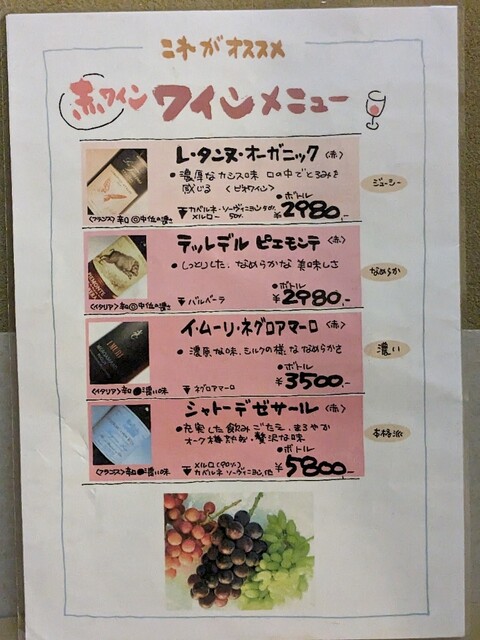 これがオススメ
赤ワイン ワインメニュー
レ・タンヌ・オーガニック <赤>
・濃厚なカシス味 口の中でとろみを
感じる <ビオワイン>
・ボトル
▼カベルネ・ソーヴィニヨン50%
メルロー 50%
¥2980,-
<フランス> 辛口
ジューシー
テッレデル ピエモンテ <赤>
・しっとりした、なめらかな 美味しさ
・ボトル
▼バルベーラ
¥2980,-
<イタリア>
なめらか
イ・ムーリ・ネグロアマーロ <赤>
・濃厚な味、シルクの様な なめらかさ
・ボトル
▼ネグロアマーロ
¥3500,-
<イタリア> 辛口●濃い味
濃い
シャトーデゼサール <赤>
・充実した飲みごたえ、まろやか
オーク樽熟製・贅沢な味
・ボトル
▼メルロ(90%)
カベルネ・ソーヴィニヨン、他
¥5800,-
<フランス> 辛口●濃い味
本格派